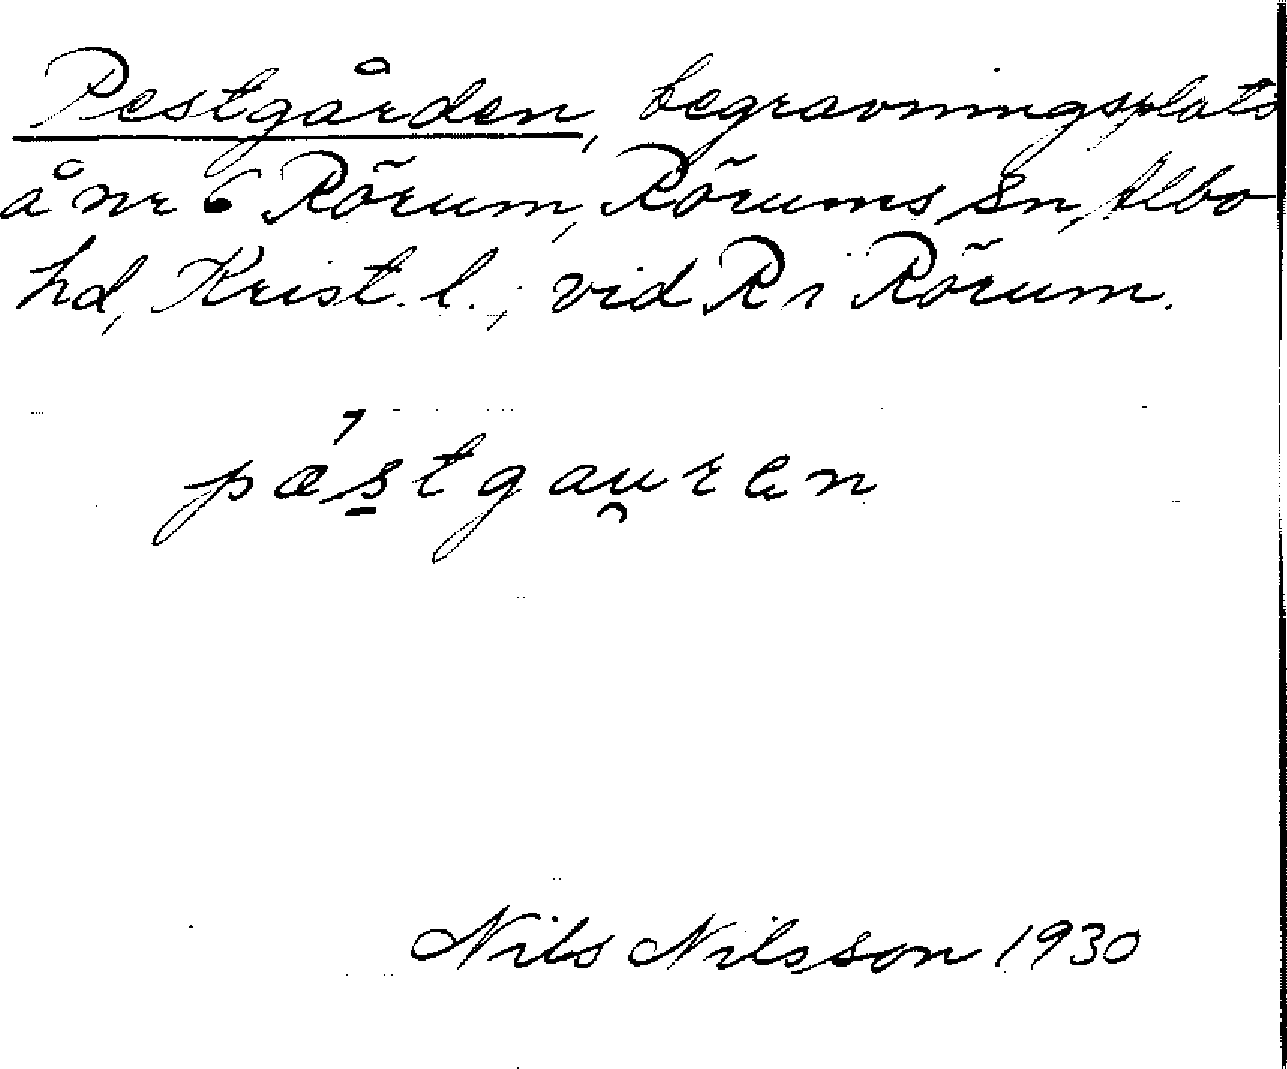 Pestgården, begravningsplats
å nr 6 Rörum, Rörums sn, Albo
hd, Krist. l.; vid R i Rörum.
pǽs̲tgau̯ren
Nils Nilsson 1930